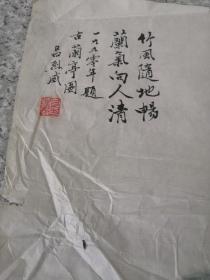 竹風隨地暢
蘭氣向人清
一九九零年題
古蘭亭圖
吕烈威